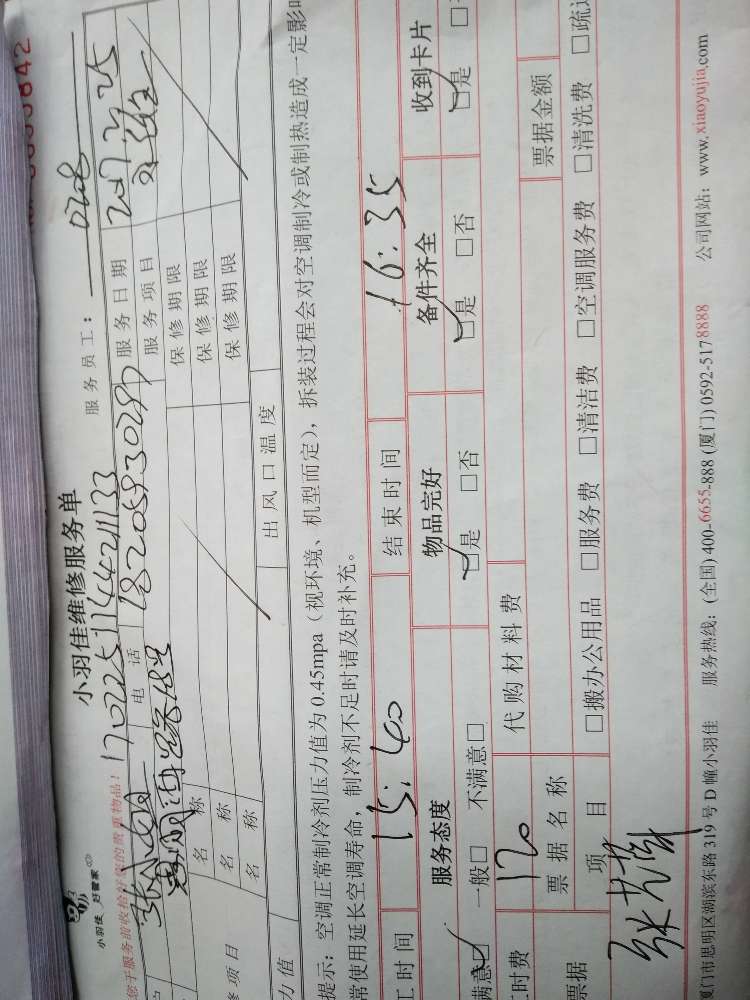 小羽佳 好管家
小羽佳维修服务单
您于服务前收拾好您的贵重物品！
170225114421133
服务员工：
0208
电话
18205930289
服务日期
2017.2.25
服务项目
名称
保修期限
名称
保修期限
名称
保修期限
修项目
力值
出风口温度
提示：空调正常制冷剂压力值为 0.45mpa（视环境、机型而定），拆装过程会对空调制冷或制热造成一定影响
常使用延长空调寿命，制冷剂不足时请及时补充。
工时间
15:40
结束时间
16:35
服务态度
物品完好
备件齐全
收到卡片
满意☑ 一般□ 不满意□
☑是 □否
☑是 □否
☑是
工时费
120
代购材料费
票据
票据名称
票据金额
项目
□搬办公用品 □服务费 □清洁费 □空调服务费 □清洗费 □疏
张
厦门市思明区湖滨东路 319 号 D 幢小羽佳 服务热线：(全国) 400-6655-888 (厦门) 0592-5178888 公司网站：www.xiaoyujia.com